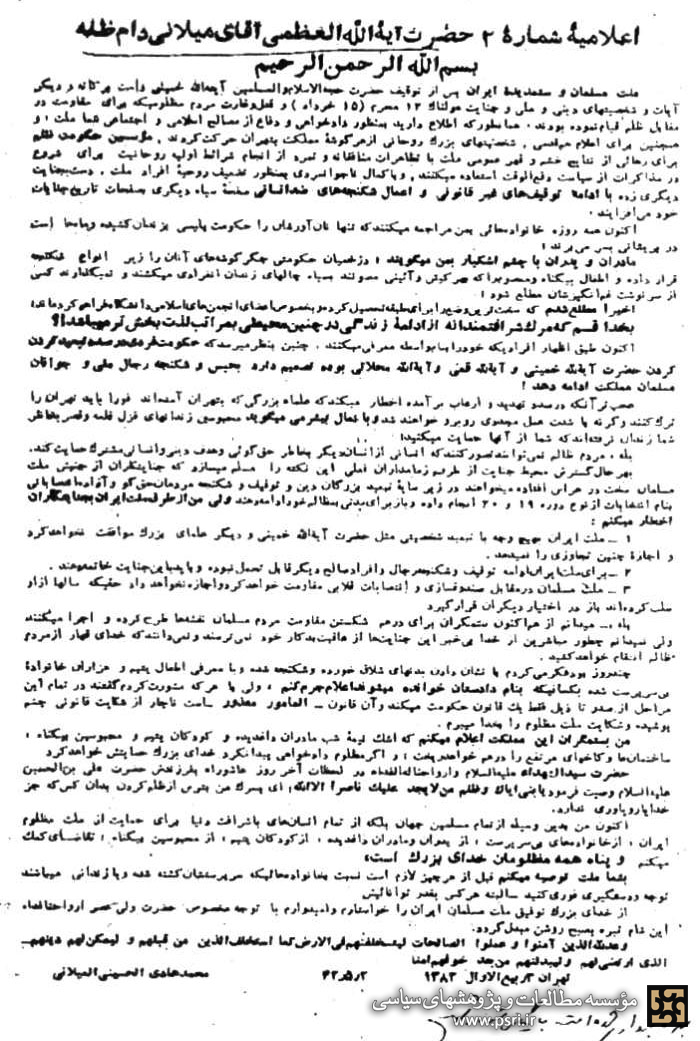 اعلامیهٔ شمارهٔ ۲ حضرت آیةالله العظمی آقای میلانی دام ظله
بسم الله الرحمن الرحیم
ملت مسلمان و ستمدیدهٔ ایران پس از توقیف حضرت حجةالاسلام والمسلمین آیةالله خمینی دامت برکاته و دیگر
آیات و شخصیتهای دینی و ملی و جنایت هولناک ۱۲ محرم (۱۵ خرداد) و قتل وغارت مردم مظلومیکه برای مقاومت در
مقابل ظلم قیام نموده بودند، همانطورکه اطلاع دارید بمنظور دادخواهی و دفاع از مصالح اسلامی و اجتماعی شما ملت، و
همچنین برای اعلام شخصیتهای بزرگ روحانی ازهرگوشهٔ مملکت بتهران حرکت کردند، مؤسسین حکومت ظلم
برای رهائی از نتایج خشم و قهر عمومی ملت با تظاهرات منافقانه و تمرد از انجام شرائط اولیه روحانیت برای شروع
در مذاکرات از سیاست دفع الوقت استفاده میکنند، وباکمال ناجوانمردی بمنظور تضعیف روحیهٔ افراد ملت، دست بجنایت
دیگری زده با ادامهٔ توقیف‌های غیر قانونی و اعمال شکنجه‌های ضدانسانی صفحهٔ سیاه دیگری بصفحات تاریخ جنایات
خود می‌افزایند.
اکنون همه روزه خانواده‌هائی بمن مراجعه میکنندکه تنها نان‌آورشان را حکومت پلیسی بزندان کشیده وماهها است
در پریشانی بسر می‌برند؛
مادران و پدران با چشم اشکبار بمن میگویند: دژخیمان حکومتی جگرگوشه‌های آنان را زیر انواع شکنجه
قرار داده و اطفال بیگناه ومعصوم را که
از سرنوشت غم‌انگیزشان مطلع شود!
اخیرا مطلع شدم که سخت‌ترین وضع را برای طبقه تحصیل کرده و بخصوص اعضای انجمن‌های اسلامی دانشگاه فراهم کرده‌اند؛
بخدا قسم که مرگ شرافتمندانه از ادامهٔ زندگی در چنین محیطی بمراتب لذت بخش‌تر میباشد!؟
اکنون طبق اظهار افرادیکه خودرا بما بواسطه معرفی میکنند، چنین بنظر میرسد که حکومت فردی درصدد تبعید کردن
کردن حضرت آیةالله خمینی و آیةالله قمی وآیةالله محلاتی بوده تصمیم دارد بحبس و شکنجه رجال ملی و جوانان
مسلمان مملکت ادامه دهد!
عجب‌تر آنکه درصدد تهدید و ارعاب برآمده اخطار میکندکه علماء بزرگی که بتهران آمده‌اند فورا باید تهران را
ترک کنند وگرنه با شدت عمل جدیدی روبرو خواهند شد وبا کمال بیشرمی میگوید محبوسین زندانهای قزل قلعه وقصر بخاطر
شما زندان رفته‌اندکه شما از آنها حمایت میکنید!
بله، مردم ظالم نمی‌توانند تصورکنندکه انسانی ازانسان دیگر بخاطر حق‌گوئی وهدف دینی وانسانی مشترک حمایت کند.
بهرحال گسترش محیط جنایت از طرف زمامداران فعلی این نکته را مسلم میسازد که جنایتکاران از جنبش ملت
مسلمان سخت در هراس افتاده میخواهند در زیر سایهٔ تبعید بزرگان دین و توقیف و شکنجه مردمان حق‌گو و آزاد
بنام انتخابات ازنوع دوره ۱۹ و ۲۰ انجام داده وباز برای مدتی بمظالم خود ادامه دهند ولی من از طرف ملت ایران بجنایتکاران
اخطار میکنم:
۱ ـ ملت ایران بهیچ وجه با تبعید شخصیتی مثل حضرت آیةالله خمینی و دیگر علمای بزرگ موافقت نخواهدکرد
و اجازهٔ چنین تجاوزی را نمیدهد.
۲ ـ برای ملت ایران ادامه توقیف وشکنجه رجال وافراد صالح دیگر قابل تحمل نبوده و باید باین جنایت خاتمه دهند.
۳ ـ ملت مسلمان درمقابل صندوقسازی و انتصابات قلابی مقاومت خواهدکرد واجازه نخواهد داد حقیکه سالها ازاو
سلب کرده‌اند باز در اختیار دیگران قرارگیرد
بله، میدانم از هم اکنون ستمگران برای درهم شکستن مقاومت مردم مسلمان نقشه‌ها طرح کرده و اجرا میکنند
ولی نمیدانم چطور مباشرین از خدا بی‌خبر این جنایت‌ها از عاقبت بدکار خود نمی‌ترسند و نمی‌دانند که خدای قهار ازمردم
ظالم انتقام خواهدکشید.
چندروز بود فکر می‌کردم با نشان دادن بدنهای شلاق خورده وشکنجه شده وبا معرفی اطفال یتیم و هزاران خانوادهٔ
بی سرپرست شده بکسانیکه بنام دادستان خوانده میشوند اعلام جرم کنم، ولی با هرکه مشورت کردم گفتند در تمام این
مراحل از صدر تا ذیل فقط یک قانون حکومت میکند وآن قانون ـ المأمور معذور ـ است ناچار از شکایت قانونی چشم
پوشیده وشکایت ملت مظلوم را بخدا میبرم.
من بستمگران این مملکت اعلام میکنم که اشک نیمهٔ شب مادران داغدیده و کودکان یتیم و محبوسین بیگناه،
ساختمان‌ها وکاخهای مرتفع را درهم خواهد ریخت؛ و اگر مظلوم دادخواهی پیدانکرد خدای بزرگ حمایتش خواهدکرد
حضرت سیدالشهداء علیه‌السلام وارواحنالفداه در لحظات آخر روز عاشوراء بفرزندش حضرت علی بن‌الحسین
علیه‌السلام وصیت فرمود یابنی ایاک وظلم من لایجد علیک ناصراً الاالله؛ ای پسرک من بترس ازظلم کردن بدان کس که جز
خدا یار ویاوری ندارد.
اکنون من بدین وسیله ازتمام مسلمین جهان بلکه از تمام انسان‌های باشرافت دنیا برای حمایت از ملت مظلوم
ایران، ازخانواده‌های بی‌سرپرست، از پدران ومادران داغدیده، ازکودکان یتیم، از محبوسین بیگناه؛ تقاضای کمک
میکنم و پناه همه مظلومان خدای بزرگ است؛
بشما ملت توصیه میکنم قبل از هرچیز لازم است نسبت بخانواده‌هائیکه سرپرستشان کشته شده ویا زندانی میباشند
توجه ودستگیری فوری کنید ـ البته هرکس بقدر توانائیش
از خدای بزرگ توفیق ملت مسلمان ایران را خواستارم وامیدوارم با توجه مخصوص حضرت ولی عصر ارواحنافداه
این شام تیره بصبح روشن مبدل گردد.
وعدالله الذین آمنوا و عملوا الصالحات لیستخلفنهم فی الارض کما استخلف الذین من قبلهم و لیمکنن لهم دینهم
الذی ارتضی لهم ولیبدلنهم من بعد خوفهم امنا
تهران ۳ ربیع الاول ۱۳۸۳ ۴۲٫۵٫۲ محمدهادی الحسینی المیلانی
مؤسسه مطالعات و پژوهشهای سیاسی
www.psri.ir